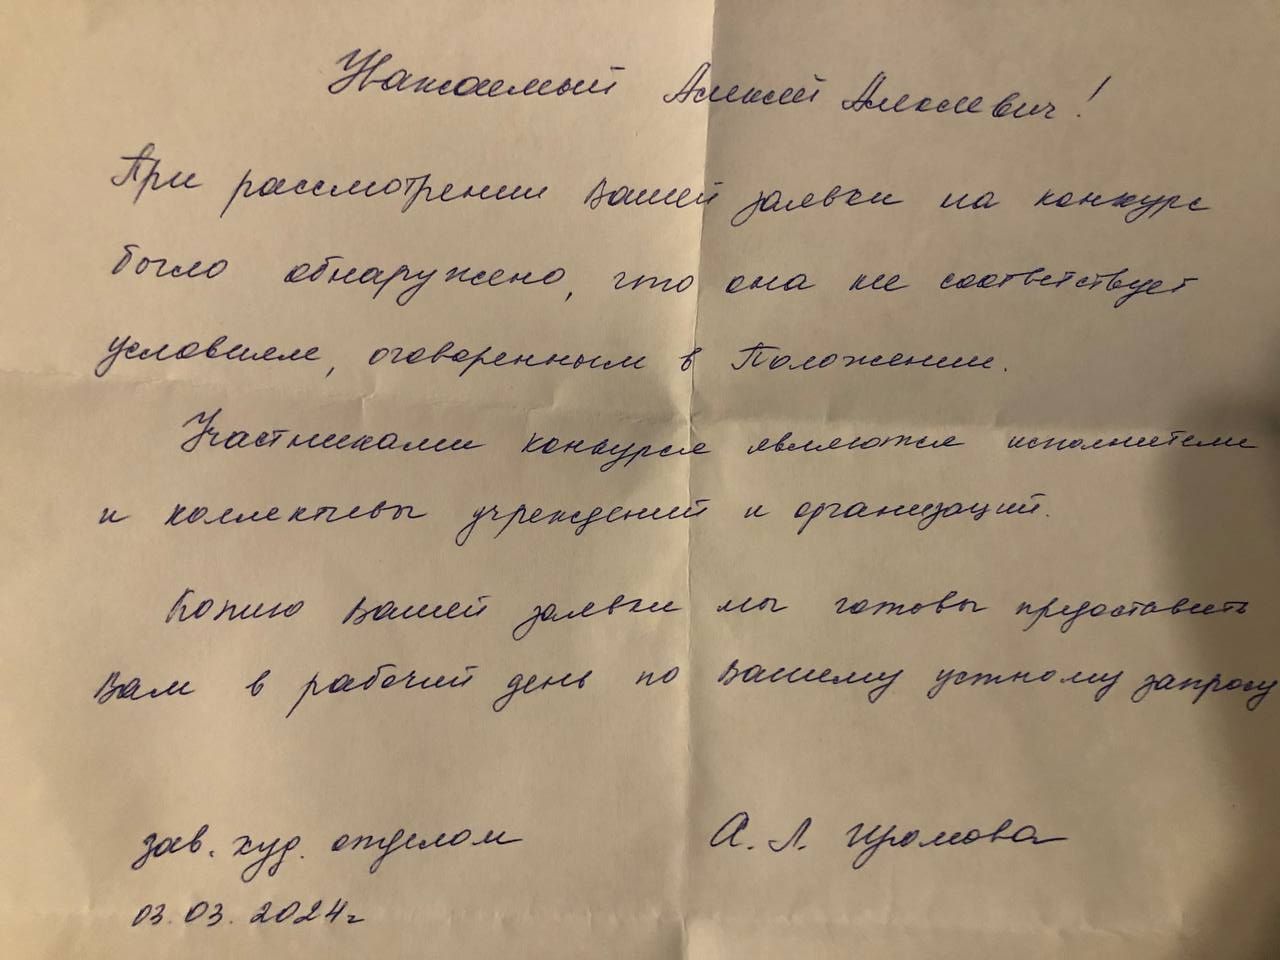 Уважаемый Алексей Алексеевич!
При рассмотрении Вашей заявки на конкурс
было обнаружено, что она не соответствует
условиям, оговоренным в Положении.
Участниками конкурса являются исполнители
и коллективы учреждений и организаций.
Копию Вашей заявки мы готовы предоставить
Вам в рабочий день по Вашему устному запросу
зав. худ. отделом
А. Л. Громова
03.03.2024г